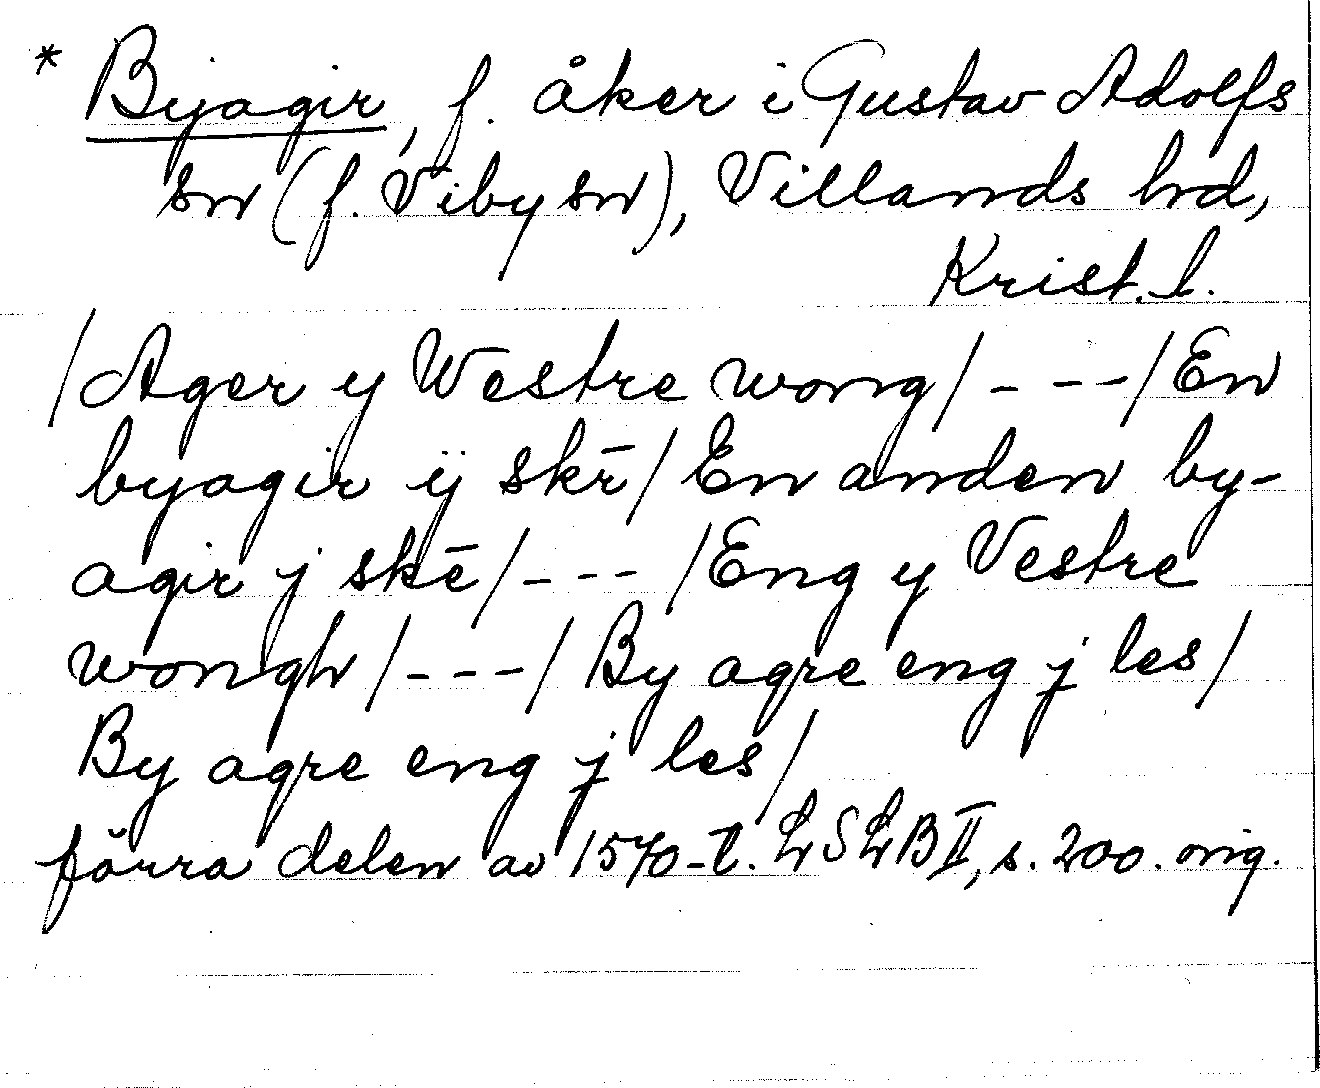 * Byagir, f. åker i Gustav Adolfs
sn (f. Viby sn), Villands hrd,
Krist. l.
/Ager y Westre wong/ - - -/En
byagir ÿ skē/ En anden by-
agir j skē/ - - - /Eng y Vestre
wongh/ - - - / By agre eng j les/
By agre eng j les/
förra delen av 1570-t. LSLB II, s. 200. orig.